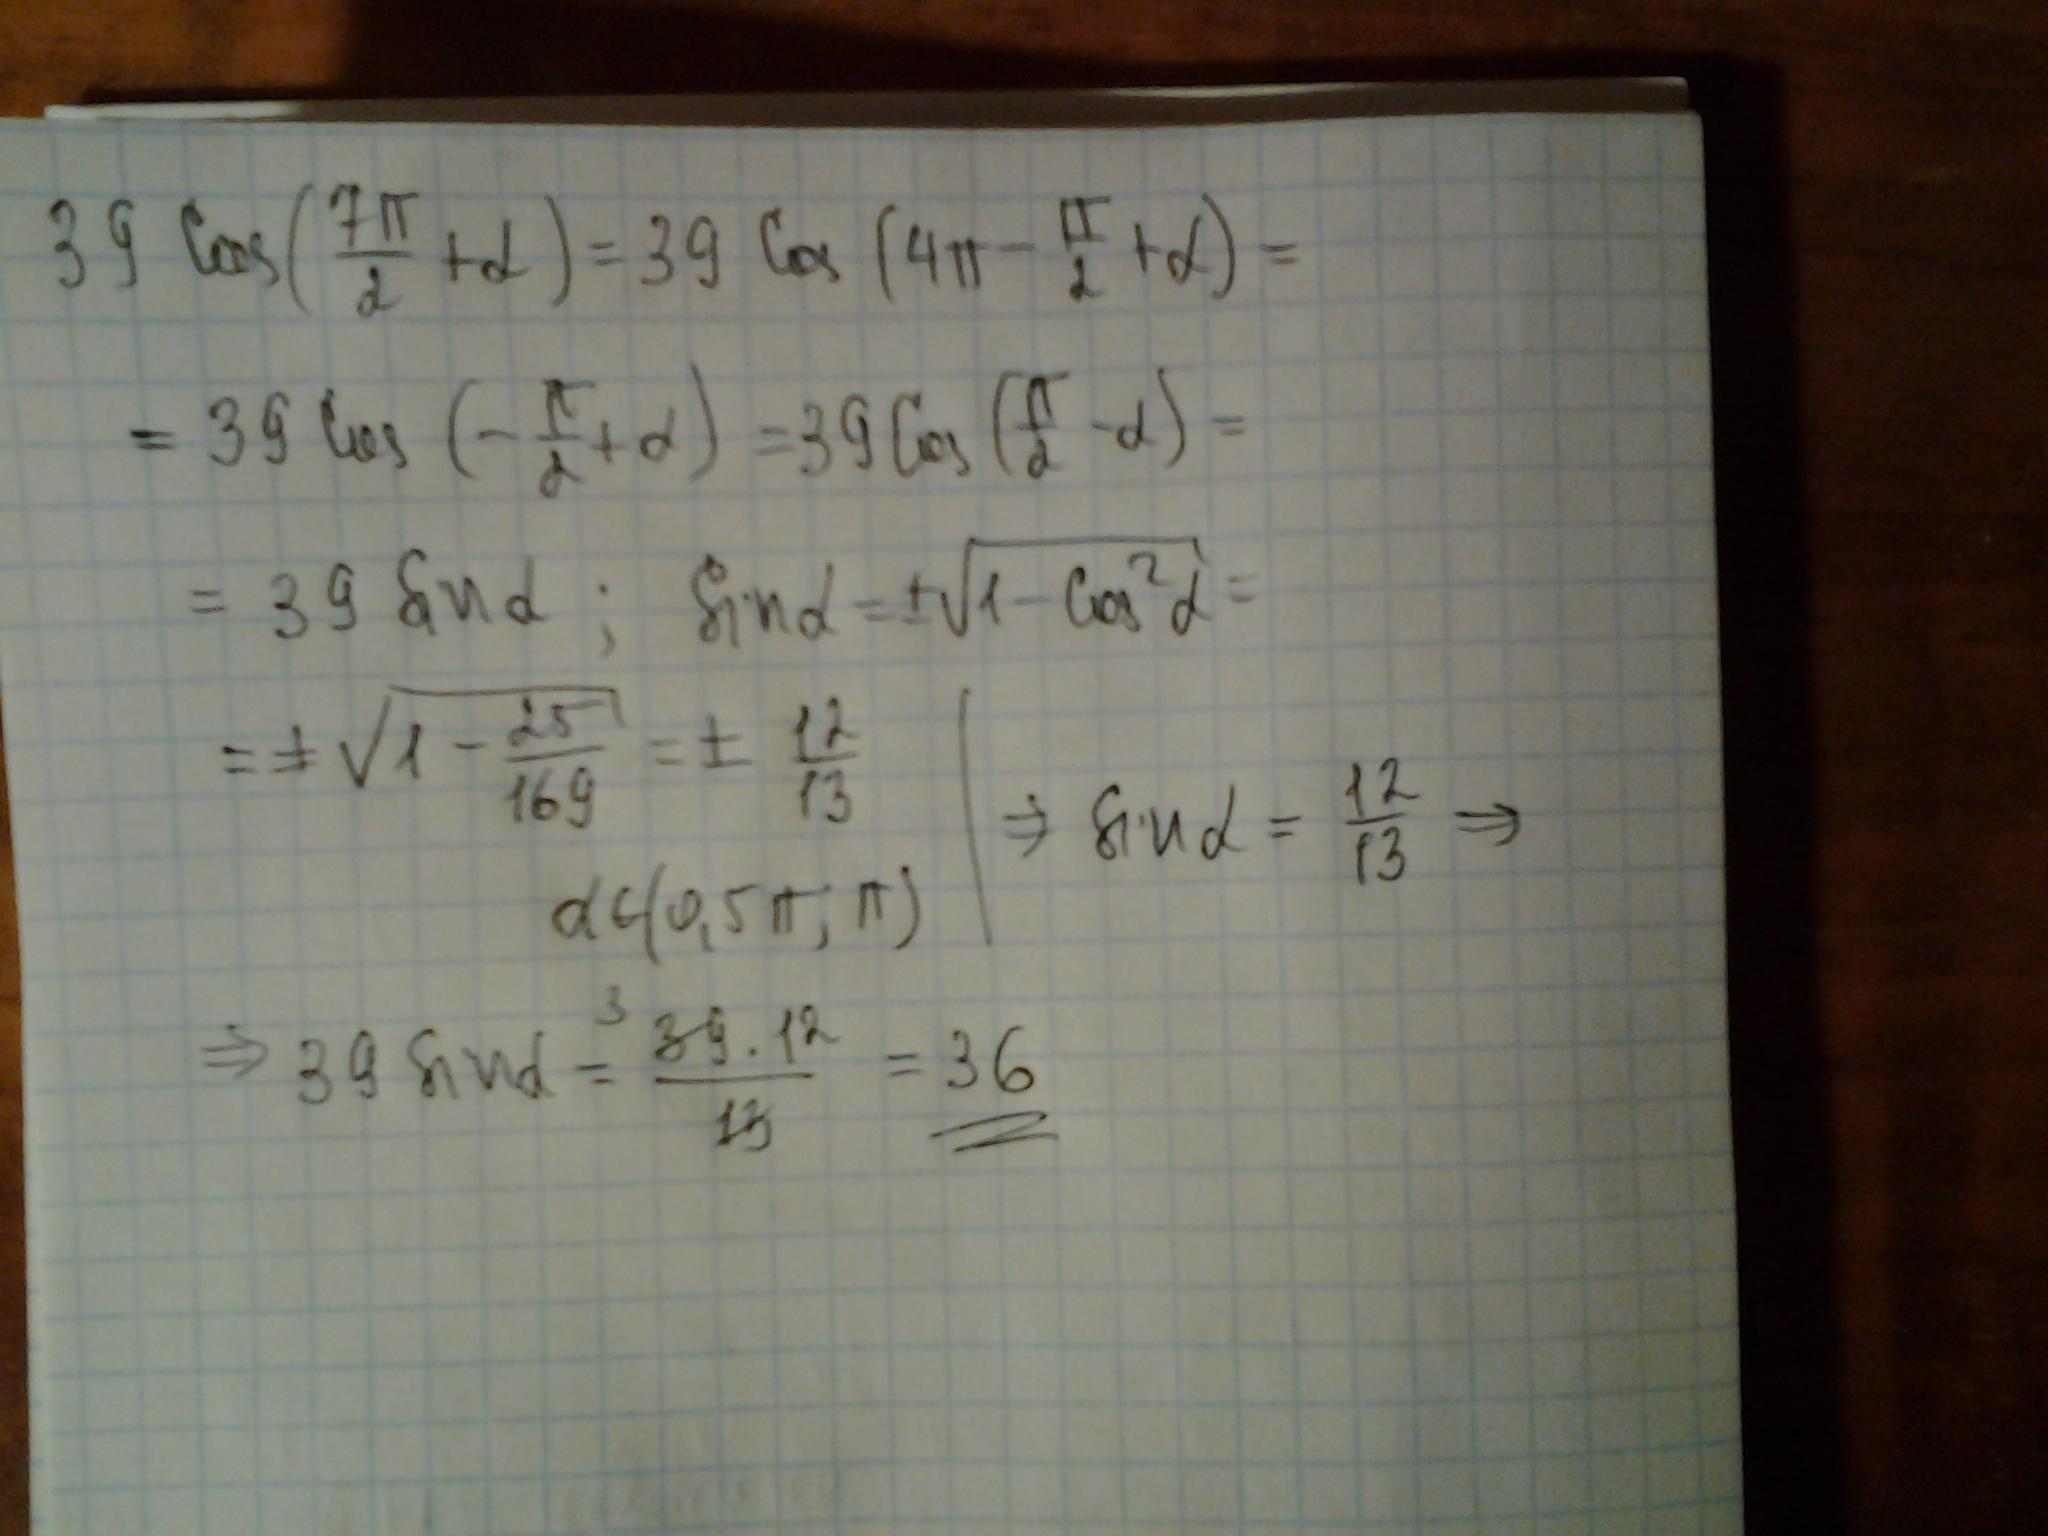 39 Cos(7π/2 + α) = 39 Cos (4π − π/2 + α) =
= 39 Cos (− π/2 + α) = 39 Cos (π/2 − α) =
= 39 Sin α ; Sin α = ±√(1 − Cos²α) =
= ± √(1 − 25/169) = ± 12/13
α ∈ (0,5π; π)
⇒ Sin α = 12/13 ⇒
⇒ 39 Sin α = ³ 39 · 12 / 13 = 36